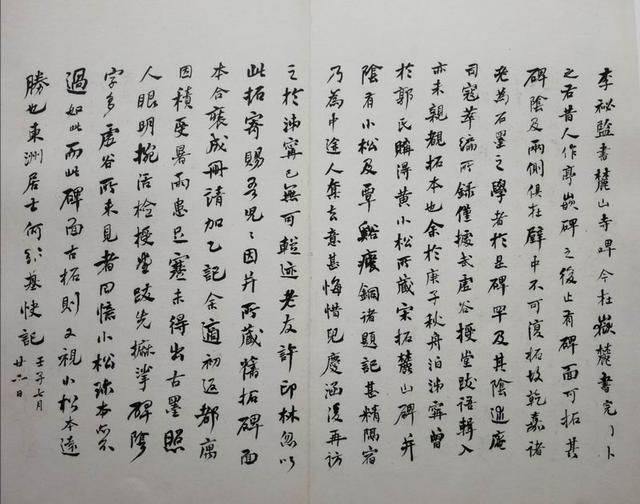 李祕監書麓山寺碑今在嶽麓書院門外
之右昔人作亭嵌碑之復止有碑面可拓其
碑陰及兩側俱在壁中不可復拓故乾嘉諸
老為石墨之學者於是碑罕及其陰逰庵
司寇萃編所録僅據武虛谷授堂跋語輯入
亦未親覩拓本也余於庚子秋舟泊沛寗曾
於郭氏購得黃小松所藏宋拓麓山碑并
陰有小松及覃谿瘦銅諸題記甚精隔宿
乃為中途人奪去意甚悔惜兒慶涵後再訪
之於沛寗已無可蹤迹老友許印林忽以
此拓寄賜吾兒兒因并所藏舊拓碑面
本合裝成冊請加乙記余適初返都寓
因積受暑雨患足蹇未得出古墨照
人眼明捥活檢授堂跋先摭拏碑陰
字多虛谷所未見者回憶小松珎本尚不
過如此而此碑面古拓則又視小松本遠
勝也東洲居士何紹基快記 壬子七月
廿六日